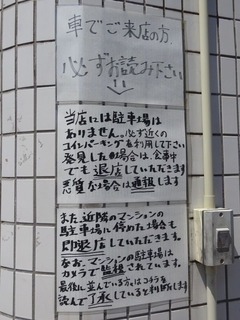 車でご来店の方
必ずお読み下さい
当店には駐車場は
ありません。必ず近くの
コインパーキングを利用して下さい
発見した場合は、食事中
でも退店していただきます
悪質な場合は通報します
また、近隣のマンションの
駐車場に停めた場合も
即退店していただきます。
なお、マンションの駐車場は
カメラで監視されています。
最後に並んでいる方はコチラを
読んで了承していると判断します